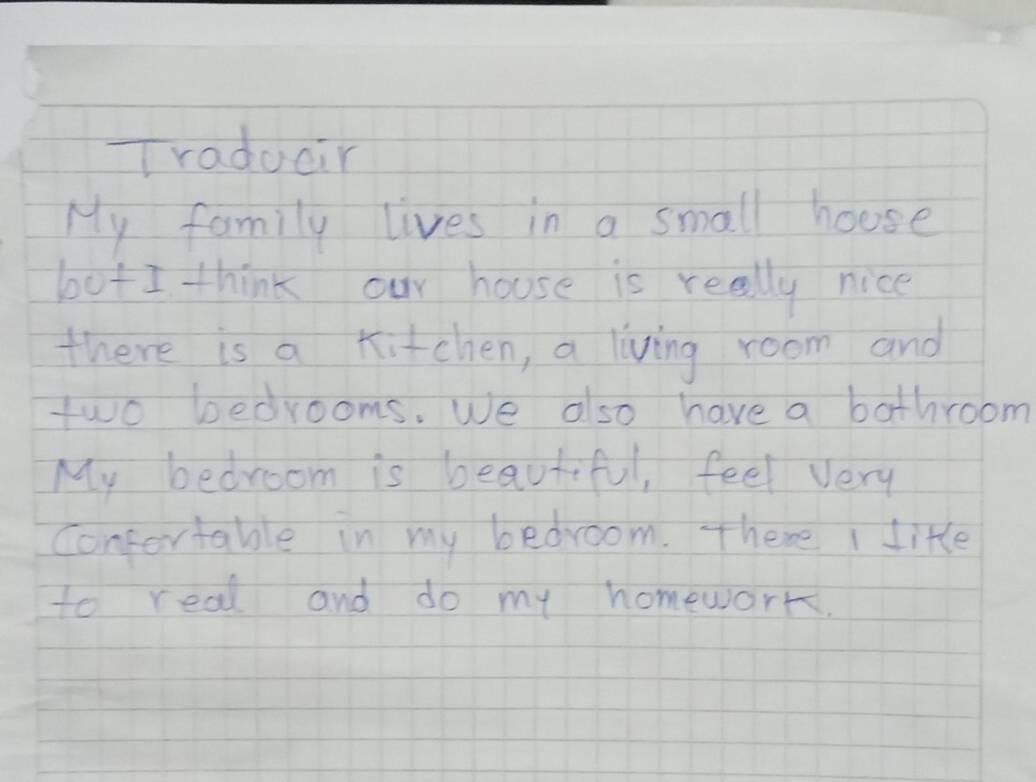 Traducir
My family lives in a small house
but I think our house is really nice
there is a kitchen, a living room and
two bedrooms. We also have a bathroom
My bedroom is beautiful, feel very
Confortable in my bedroom. There I like
to real and do my homework.